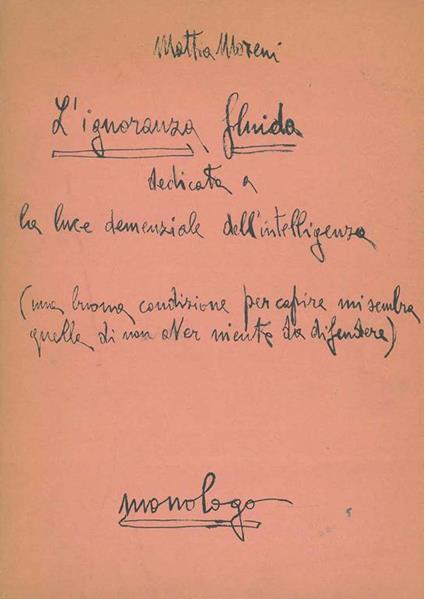 Mattia Moreni
L'ignoranza fluida
dedicata a
la luce demenziale dell'intelligenza
(una buona condizione per capire mi sembra
quella di non aver niente da difendere)
monologo